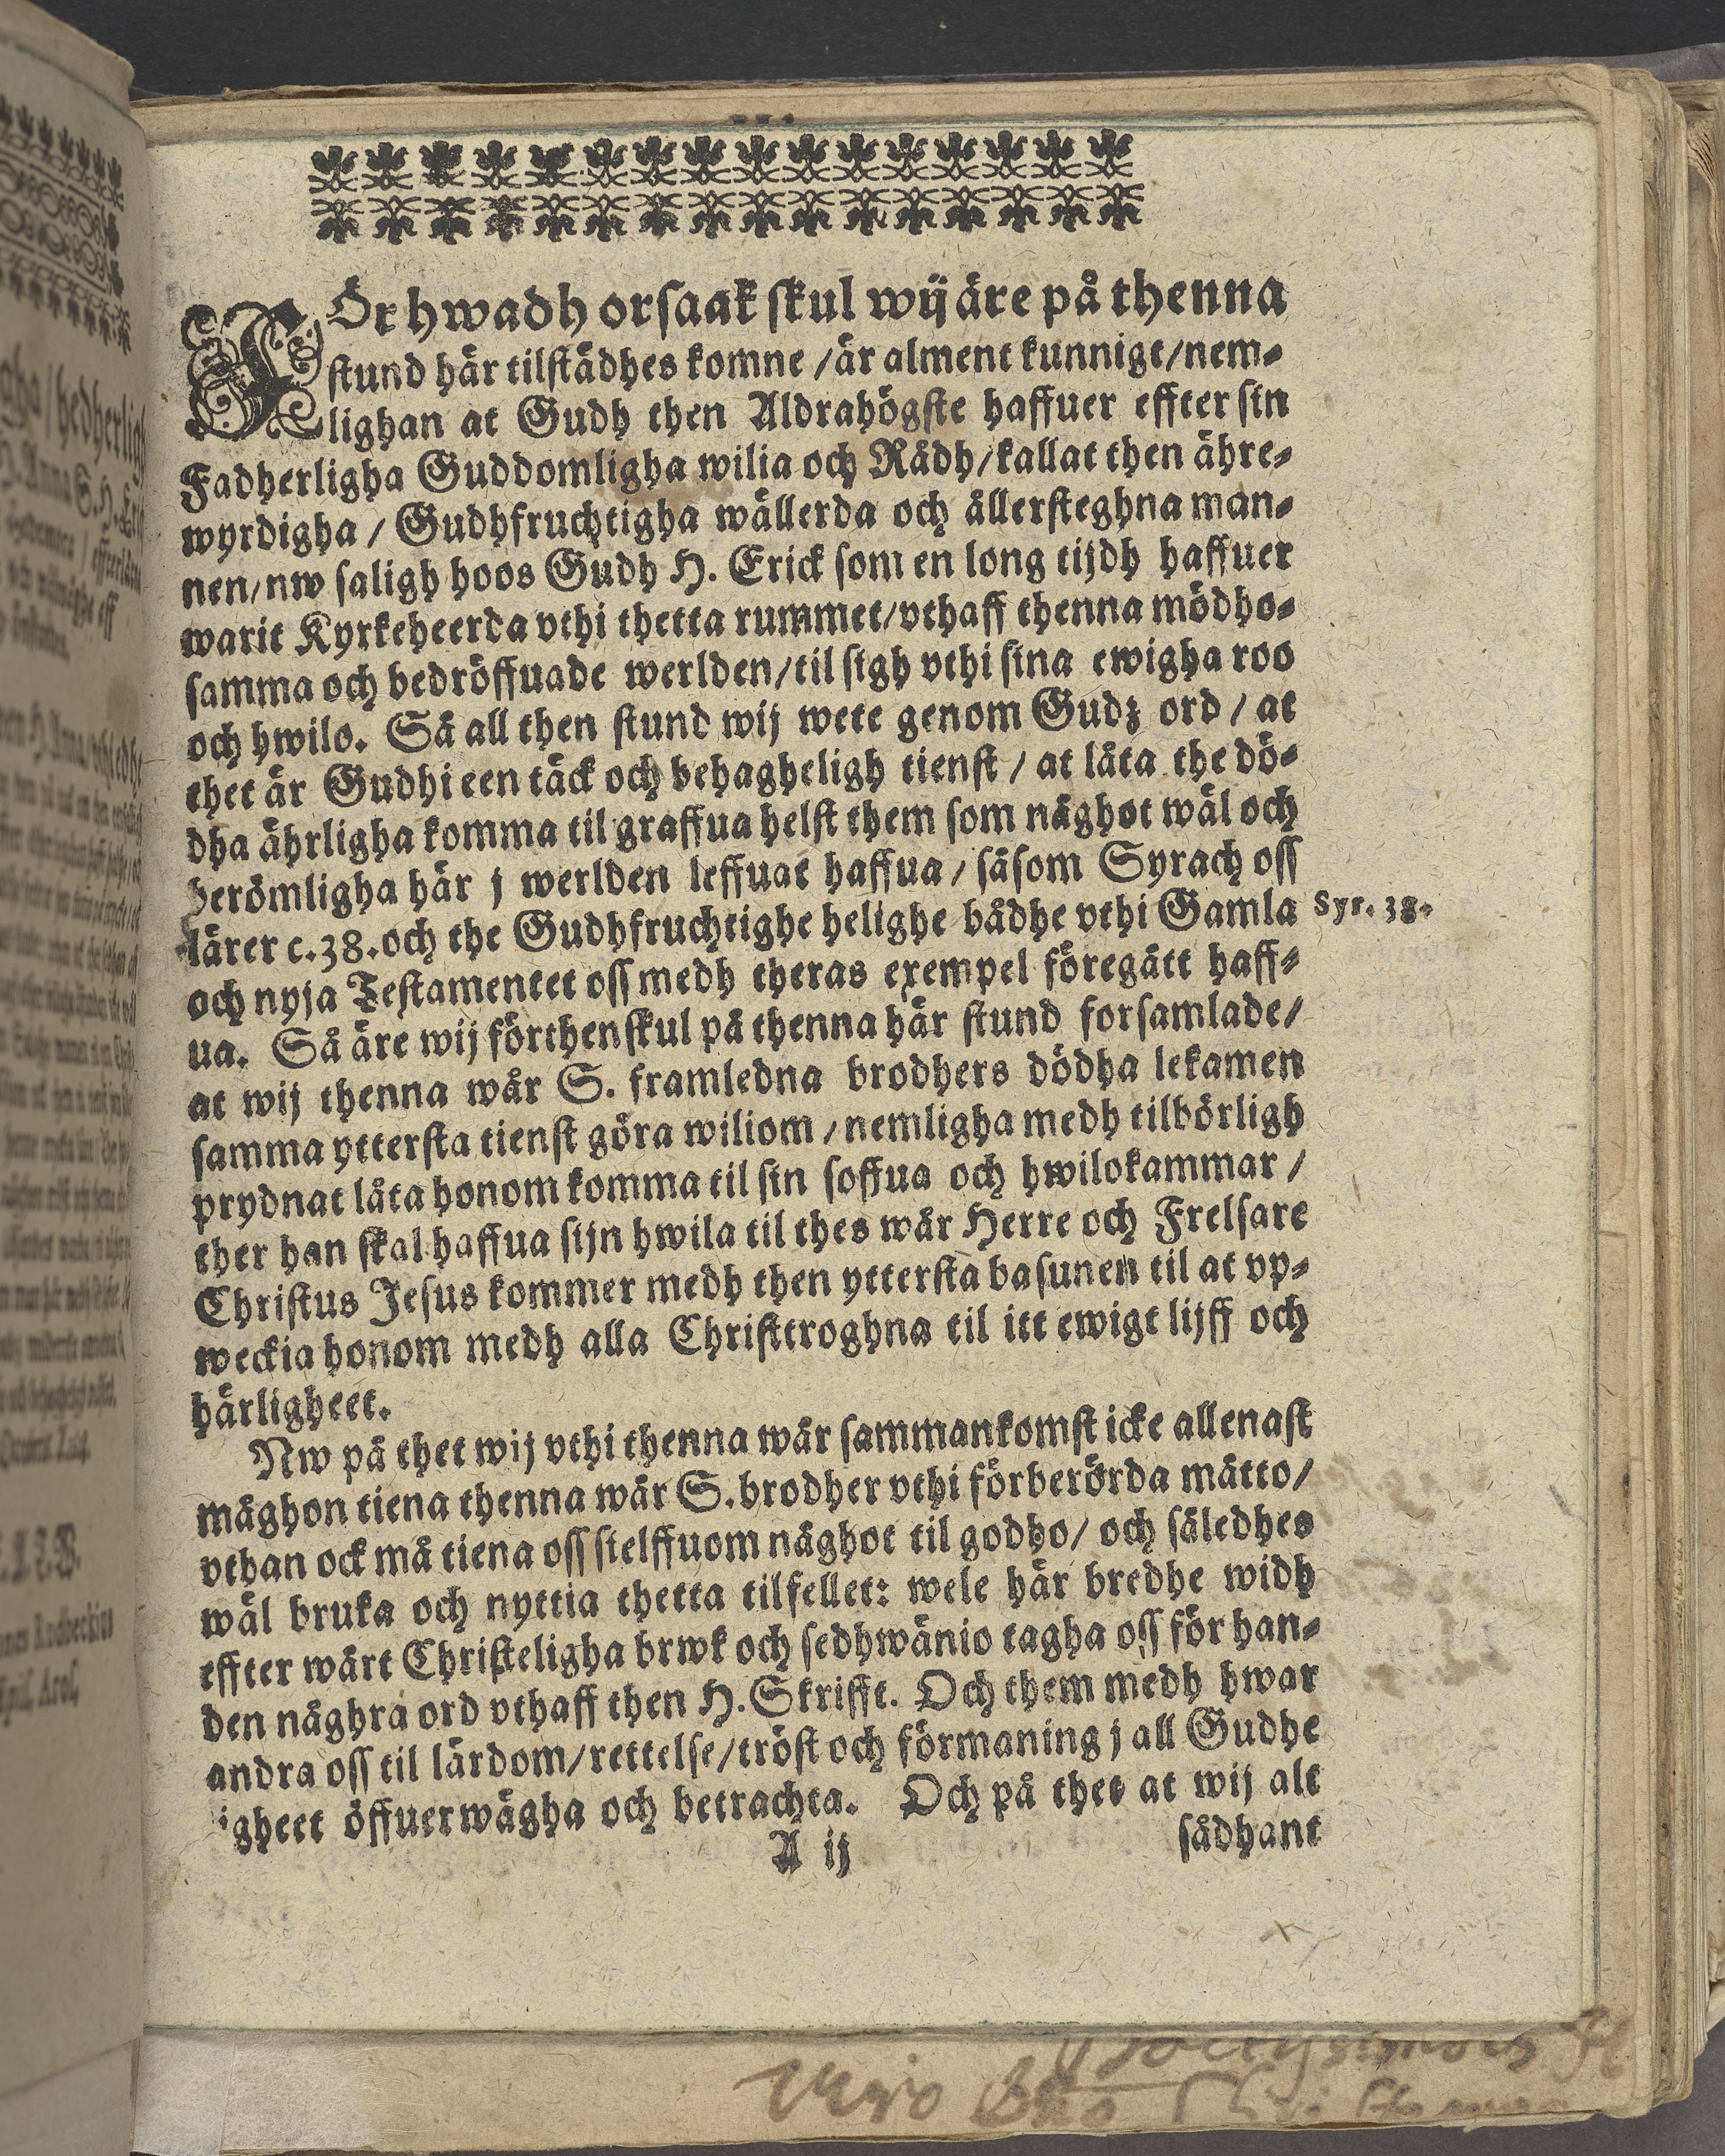 FÖr hwadh orsaak skul wij äre på thenna
stund här tilstädhes komne / är alment kunnigt / nem-
lighan at Gudh then Aldrahögste haffuer effter sin
Fadherligha Guddomligha wilia och Rådh / kallat then ähre-
wyrdigha / Gudhfruchtigha wällerda och ållersteghna man-
nen / nw saligh hoos Gudh H. Erick som en long tijdh haffuer
warit Kyrkeheerda vthi thetta rummet / vthaff thenna mödho-
samma och bedröffuade werlden / til sigh vthi sina ewigha roo
och hwilo. Så all then stund wij wete genom Gudz ord / at
thet är Gudhi een täck och behagheligh tienst / at låta the dö-
dha ährligha komma til graffua helst them som någhot wäl och
berömligha här j werlden leffuat haffua / såsom Syrach oss
lärer c. 38. och the Gudhfruchtighe helighe bådhe vthi Gamla
Syr. 38.
och nyja Testamentet oss medh theras exempel föregått haff-
ua. Så äre wij förthenskul på thenna här stund forsamlade /
at wij thenna wår S. framledna brodhers dödha lekamen
samma yttersta tienst göra wiliom / nemligha medh tilbörligh
prydnat låta honom komma til sin soffua och hwilokammar /
ther han skal haffua sijn hwila til thes wår Herre och Frelsare
Christus Jesus kommer medh then yttersta basunen til at vp-
weckia honom medh alla Christtroghna til itt ewigt lijff och
härligheet.
Nw på thet wij vthi thenna wår sammankomst icke allenast
måghon tiena thenna wår S. brodher vthi förberörda måtto /
vthan ock må tiena oss sielffuom någhot til godho / och såledhes
wäl bruka och nyttia thetta tilfellet: wele här bredhe widh
effter wårt Christeligha brwk och sedhwänio tagha oss för han-
den någhra ord vthaff then H. Skrifft. Och them medh hwar
andra oss til lärdom / rettelse / tröst och förmaning j all Gudhe
igheet öffuerwägha och betrachta. Och på thet at wij alt
A ij
sådhant